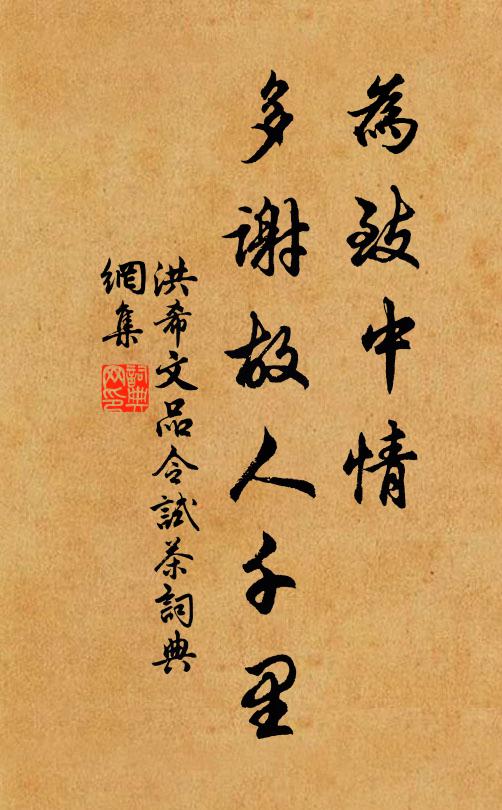 為致中情
多謝故人千里
洪希文品令試茶詞典
網集
詞典
网印